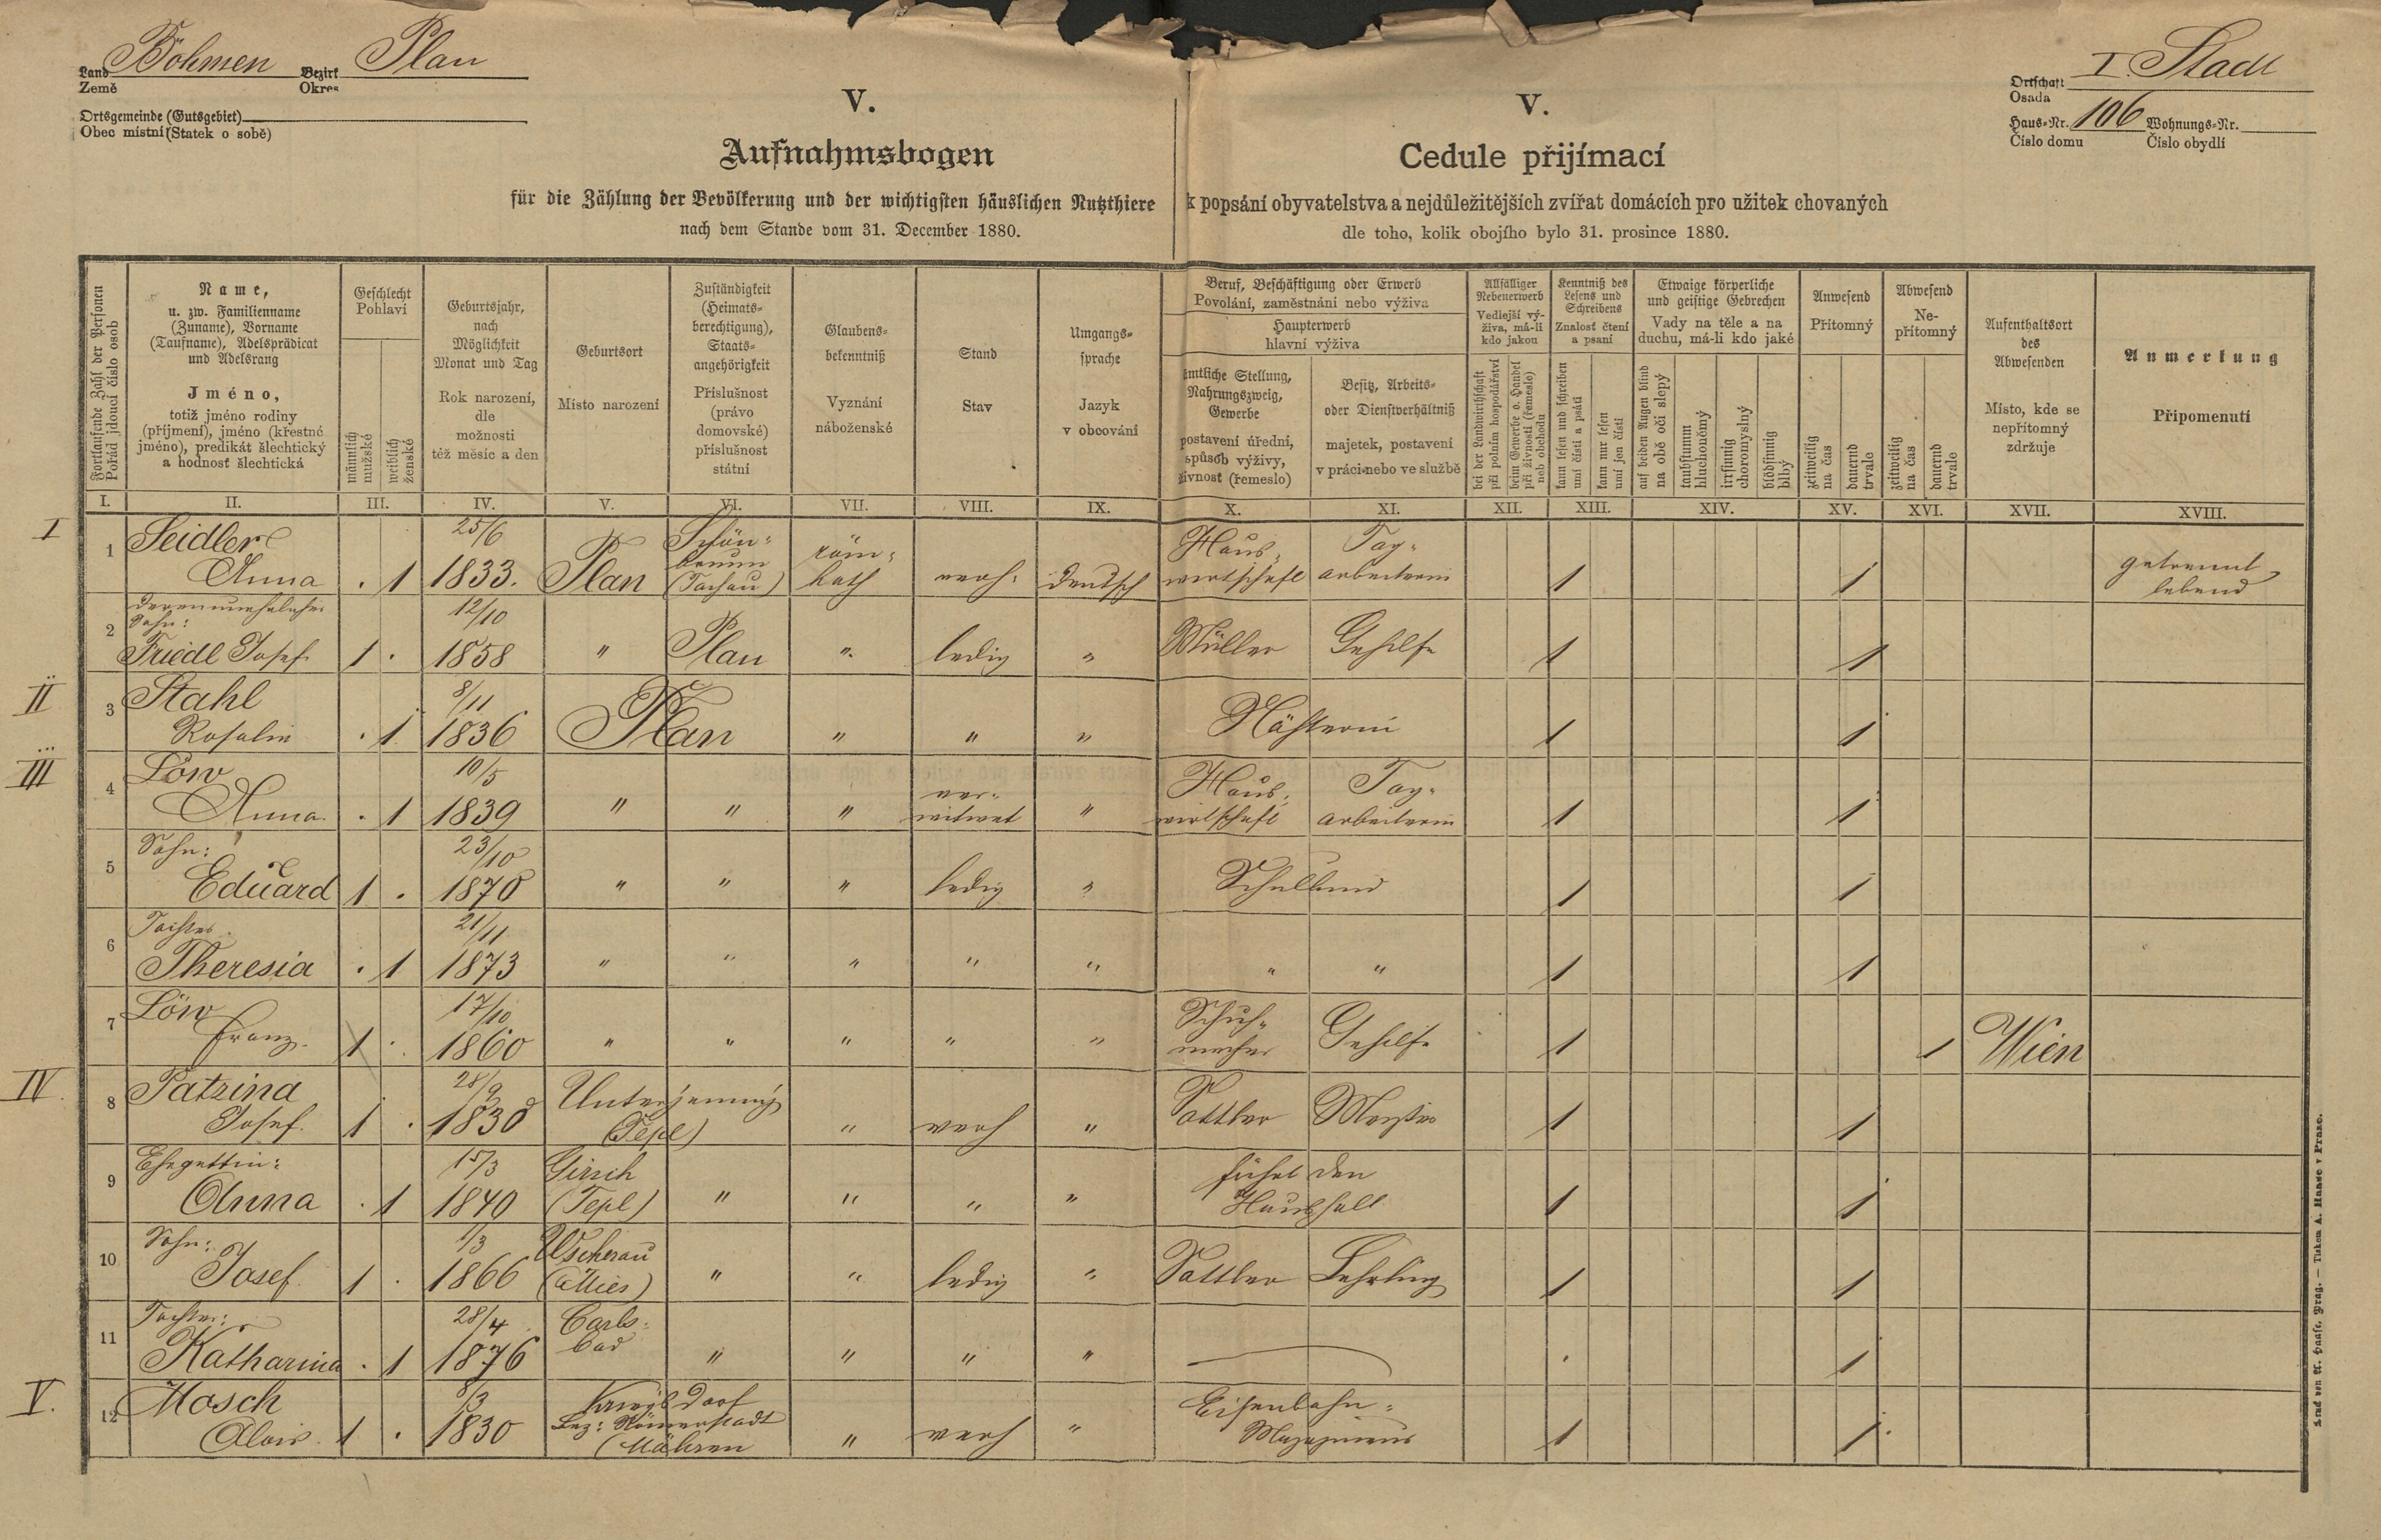 Land Böhmen Bezirk Plan
Země Okres
Ortsgemeinde (Gutsgebiet)
Obec místní (Statek o sobě)
I. Stadt
Ortschaft
Osada
Haus-Nr. 106 Wohnungs-Nr.
Číslo domu Číslo obydlí
V.
Aufnahmsbogen
für die Zählung der Bevölkerung und der wichtigsten häuslichen Nutzthiere
nach dem Stande vom 31. December 1880.
V.
Cedule přijímací
k popsání obyvatelstva a nejdůležitějších zvířat domácích pro užitek chovaných
dle toho, kolik obojího bylo 31. prosince 1880.
Fortlaufende Zahl der Personen
Pořád jdoucí číslo osob
Name,
u. zw. Familienname
(Zuname), Vorname
(Taufname), Adelsprädicat
und Adelsrang
Jméno,
totiž jméno rodiny
(příjmení), jméno (křestné
jméno), predikát šlechtický
a hodnosť šlechtická
Geschlecht
Pohlaví
männlich
mužské
weiblich
ženské
Geburtsjahr,
nach
Möglichkeit
Monat und Tag
Rok narození,
dle
možnosti
též měsíc a den
Geburtsort
Místo narození
Zuständigkeit
(Heimats-
berechtigung),
Staats-
angehörigkeit
Příslušnost
(právo
domovské)
příslušnost
státní
Glaubens-
bekenntniß
Vyznání
náboženské
Stand
Stav
Umgangs-
sprache
Jazyk
v obcování
Beruf, Beschäftigung oder Erwerb
Povolání, zaměstnání nebo výživa
Haupterwerb
hlavní výživa
ämtliche Stellung,
Nahrungszweig,
Gewerbe
postavení úřední,
spůsob výživy,
živnost (řemeslo)
Besitz, Arbeits-
oder Dienstverhältniß
majetek, postavení
v práci nebo ve službě
Allfälliger
Nebenerwerb
Vedlejší vý-
živa, má-li
kdo jakou
bei der Landwirthschaft
při polním hospodářství
beim Gewerbe o. Handel
při živnosti (řemesle)
neb obchodu
Kenntniß des
Lesens und
Schreibens
Znalosť čtení
a psaní
kann lesen und schreiben
umí čísti a psáti
kann nur lesen
umí jen čísti
Etwaige körperliche
und geistige Gebrechen
Vady na těle a na
duchu, má-li kdo jaké
auf beiden Augen blind
na obě oči slepý
taubstumm
hluchoněmý
irrsinnig
choromyslný
blödsinnig
blbý
Anwesend
Přítomný
zeitweilig
na čas
dauernd
trvale
Abwesend
Ne-
přítomný
zeitweilig
na čas
dauernd
trvale
Aufenthaltsort
des
Abwesenden
Místo, kde se
nepřítomný
zdržuje
Anmerkung
Připomenutí
I. II. III. IV. V. VI. VII. VIII. IX. X. XI. XII. XIII. XIV. XV. XVI. XVII. XVIII.
I 1 Seidler 25/6 Schön- röm- Haus- Tag-
brunn
Anna . 1 1833. Plan (Tachau) kath verh. deutsch wirtschaft arbeiterin 1 1 getrennt
lebend
2 deren unehelicher 12/10
Sohn:
Friedl Josef 1 . 1858 " Plan " ledig " Müller Gehilfe 1 1
II 3 Stahl 8/11
Rosalia . 1 1836 Plan " " " Näherin 1 1
III 4 Löw 10/5 ver- Haus- Tag-
Anna . 1 1839 " " " witwet " wirtschaft arbeiterin 1 1
5 Sohn: 23/10
Eduard 1 . 1870 " " " ledig " Schulkind 1 1
6 Tochter 21/11
Theresia . 1 1873 " " " " " " " 1 1
7 Löw 17/10 Schuh-
Franz 1 . 1860 " " " " " macher Gehilfe 1 1 Wien
IV 8 Patzina 28/9 Unterjamny
Josef 1 . 1830 (Tepl) " verh " Sattler Meister 1 1
9 Ehegattin: 15/3 Girsch führt den
Anna . 1 1840 (Tepl) " " " " Haushalt 1 1
10 Sohn: 1/3 Wscherau
Josef 1 . 1866 (Mies) " " ledig " Sattler Lehrling 1 1
11 Tochter: 28/4 Carls-
bad
Katharina . 1 1876 " " " " . 1
V. 12 Mosch 8/3 Eisenbahn-
Bez: Römerstadt
Alois 1 . 1830 (Mähren " verh " Magazineur 1 1
Druck von A. Haase, Prag. — Tiskem A. Haase v Praze.